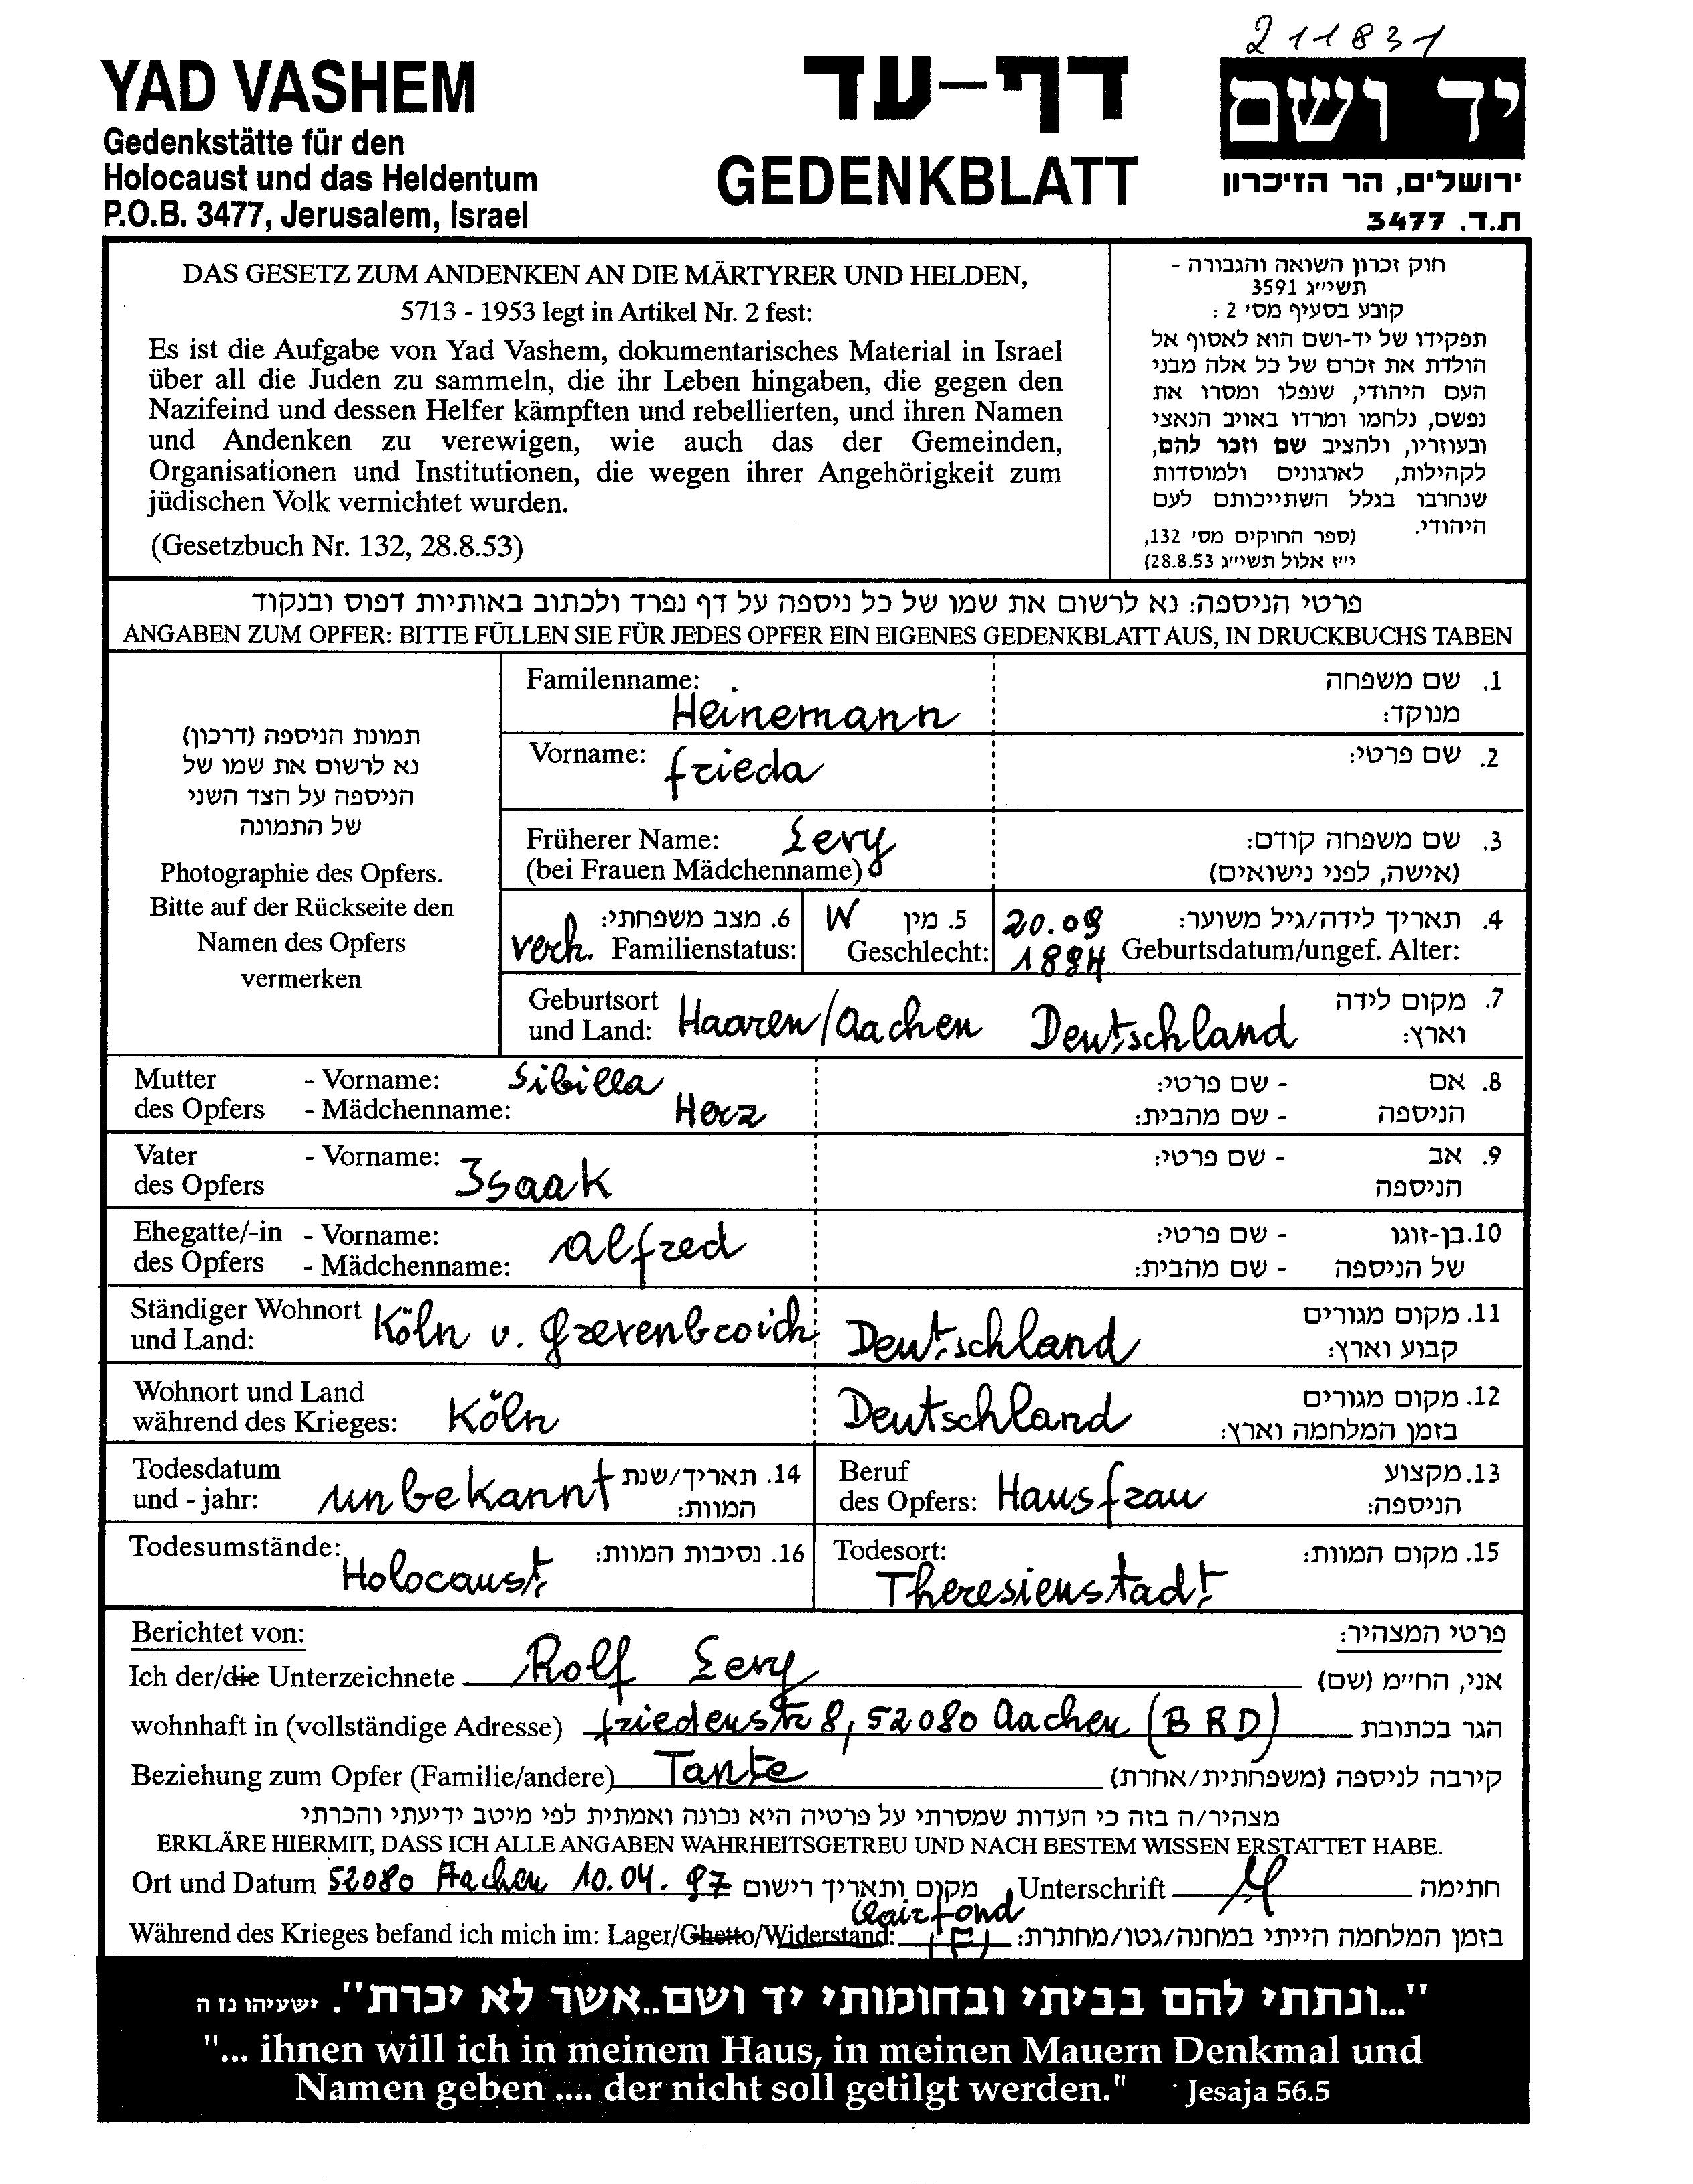 211831
YAD VASHEM
Gedenkstätte für den
Holocaust und das Heldentum
P.O.B. 3477, Jerusalem, Israel
דף-עד
GEDENKBLATT
יד ושם
ירושלים, הר הזיכרון
ת.ד. 3477
DAS GESETZ ZUM ANDENKEN AN DIE MÄRTYRER UND HELDEN,
5713 - 1953 legt in Artikel Nr. 2 fest:
Es ist die Aufgabe von Yad Vashem, dokumentarisches Material in Israel
über all die Juden zu sammeln, die ihr Leben hingaben, die gegen den
Nazifeind und dessen Helfer kämpften und rebellierten, und ihren Namen
und Andenken zu verewigen, wie auch das der Gemeinden,
Organisationen und Institutionen, die wegen ihrer Angehörigkeit zum
jüdischen Volk vernichtet wurden.
(Gesetzbuch Nr. 132, 28.8.53)
חוק זכרון השואה והגבורה -
תשי״ג 3591
קובע בסעיף מס׳ 2 :
תפקידו של יד-ושם הוא לאסוף אל
הולדת את זכרם של כל אלה מבני
העם היהודי, שנפלו ומסרו את
נפשם, נלחמו ומרדו באויב הנאצי
ובעוזריו, ולהציב שם וזכר להם,
לקהילות, לארגונים ולמוסדות
שנחרבו בגלל השתייכותם לעם
היהודי.
(ספר החוקים מס׳ 132,
י״ז אלול תשי״ג 28.8.53)
פרטי הניספה: נא לרשום את שמו של כל ניספה על דף נפרד ולכתוב באותיות דפוס ובנקוד
ANGABEN ZUM OPFER: BITTE FÜLLEN SIE FÜR JEDES OPFER EIN EIGENES GEDENKBLATT AUS, IN DRUCKBUCHS TABEN
תמונת הניספה (דרכון)
נא לרשום את שמו של
הניספה על הצד השני
של התמונה
Photographie des Opfers.
Bitte auf der Rückseite den
Namen des Opfers
vermerken
Familenname: Heinemann 1. שם משפחה
מנוקד:
Vorname: Frieda 2. שם פרטי:
Früherer Name: Levy 3. שם משפחה קודם:
(bei Frauen Mädchenname) (אישה, לפני נישואים)
verh. 6. מצב משפחתי: W 5. מין 20.09 4. תאריך לידה/גיל משוער:
Familienstatus: Geschlecht: 1894 Geburtsdatum/ungef. Alter:
Geburtsort Haaren/Aachen Deutschland 7. מקום לידה
und Land: וארץ:
Mutter - Vorname: Sibilla 8. אם - שם פרטי:
des Opfers - Mädchenname: Herz הניספה - שם מהבית:
Vater - Vorname: Isaak 9. אב - שם פרטי:
des Opfers הניספה
Ehegatte/-in - Vorname: Alfred 10. בן-זוגו - שם פרטי:
des Opfers - Mädchenname: של הניספה - שם מהבית:
Ständiger Wohnort Köln u. Grevenbroich Deutschland 11. מקום מגורים
und Land: קבוע וארץ:
Wohnort und Land Köln Deutschland 12. מקום מגורים
während des Krieges: בזמן המלחמה וארץ:
Todesdatum unbekannt 14. תאריך/שנת Beruf Hausfrau 13. מקצוע
und - jahr: המוות: des Opfers: הניספה:
Todesumstände: Holocaust 16. נסיבות המוות: Todesort: Theresienstadt 15. מקום המוות:
Berichtet von: פרטי המצהיר:
Ich der/die Unterzeichnete Rolf Levy אני, החי״מ (שם)
wohnhaft in (vollständige Adresse) Friedenstr 8, 52080 Aachen (BRD) הגר בכתובת
Beziehung zum Opfer (Familie/andere) Tante קירבה לניספה (משפחתית/אחרת)
מצהיר/ה בזה כי העדות שמסרתי על פרטיה היא נכונה ואמתית לפי מיטב ידיעתי והכרתי
ERKLÄRE HIERMIT, DASS ICH ALLE ANGABEN WAHRHEITSGETREU UND NACH BESTEM WISSEN ERSTATTET HABE.
Ort und Datum 52080 Aachen 10.04.97 מקום ותאריך רישום Unterschrift חתימה
Während des Krieges befand ich mich im: Lager/Ghetto/Widerstand: (F) בזמן המלחמה הייתי במחנה/גטו/מחתרת:
"...ונתתי להם בביתי ובחומותי יד ושם..אשר לא יכרת". ישעיהו נו ה
"... ihnen will ich in meinem Haus, in meinen Mauern Denkmal und
Namen geben .... der nicht soll getilgt werden." Jesaja 56.5